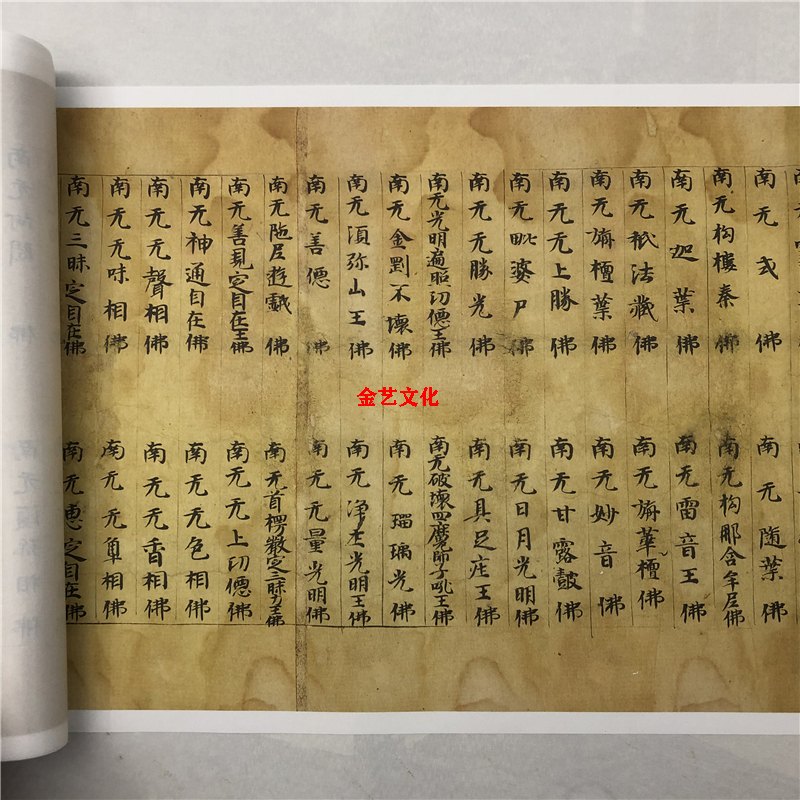 南无式佛
南无随葉佛
南无拘樓秦佛
南无拘那含牟尼佛
南无迦葉佛
南无雷音王佛
南无祇法藏佛
南无旃華檀佛
南无旃檀葉佛
南无妙音佛
南无无上勝佛
南无甘露鼓佛
南无毗婆尸佛
南无日月光明佛
南无无勝光佛
南无具足庄王佛
南无光明遍照功德王佛
南无破壞四魔師子吼王佛
南无金剛不壞佛
南无瑠璃光佛
南无須弥山王佛
南无净光明王佛
南无善德佛
南无无量光明佛
南无陁尼遊戲佛
南无首楞嚴定三昧力王佛
南无善見定自在王佛
南无无上功德佛
南无神通自在佛
南无无色相佛
南无无聲相佛
南无无香相佛
南无无味相佛
南无无相佛
南无三昧定自在佛
南无惠定自在佛
金艺文化